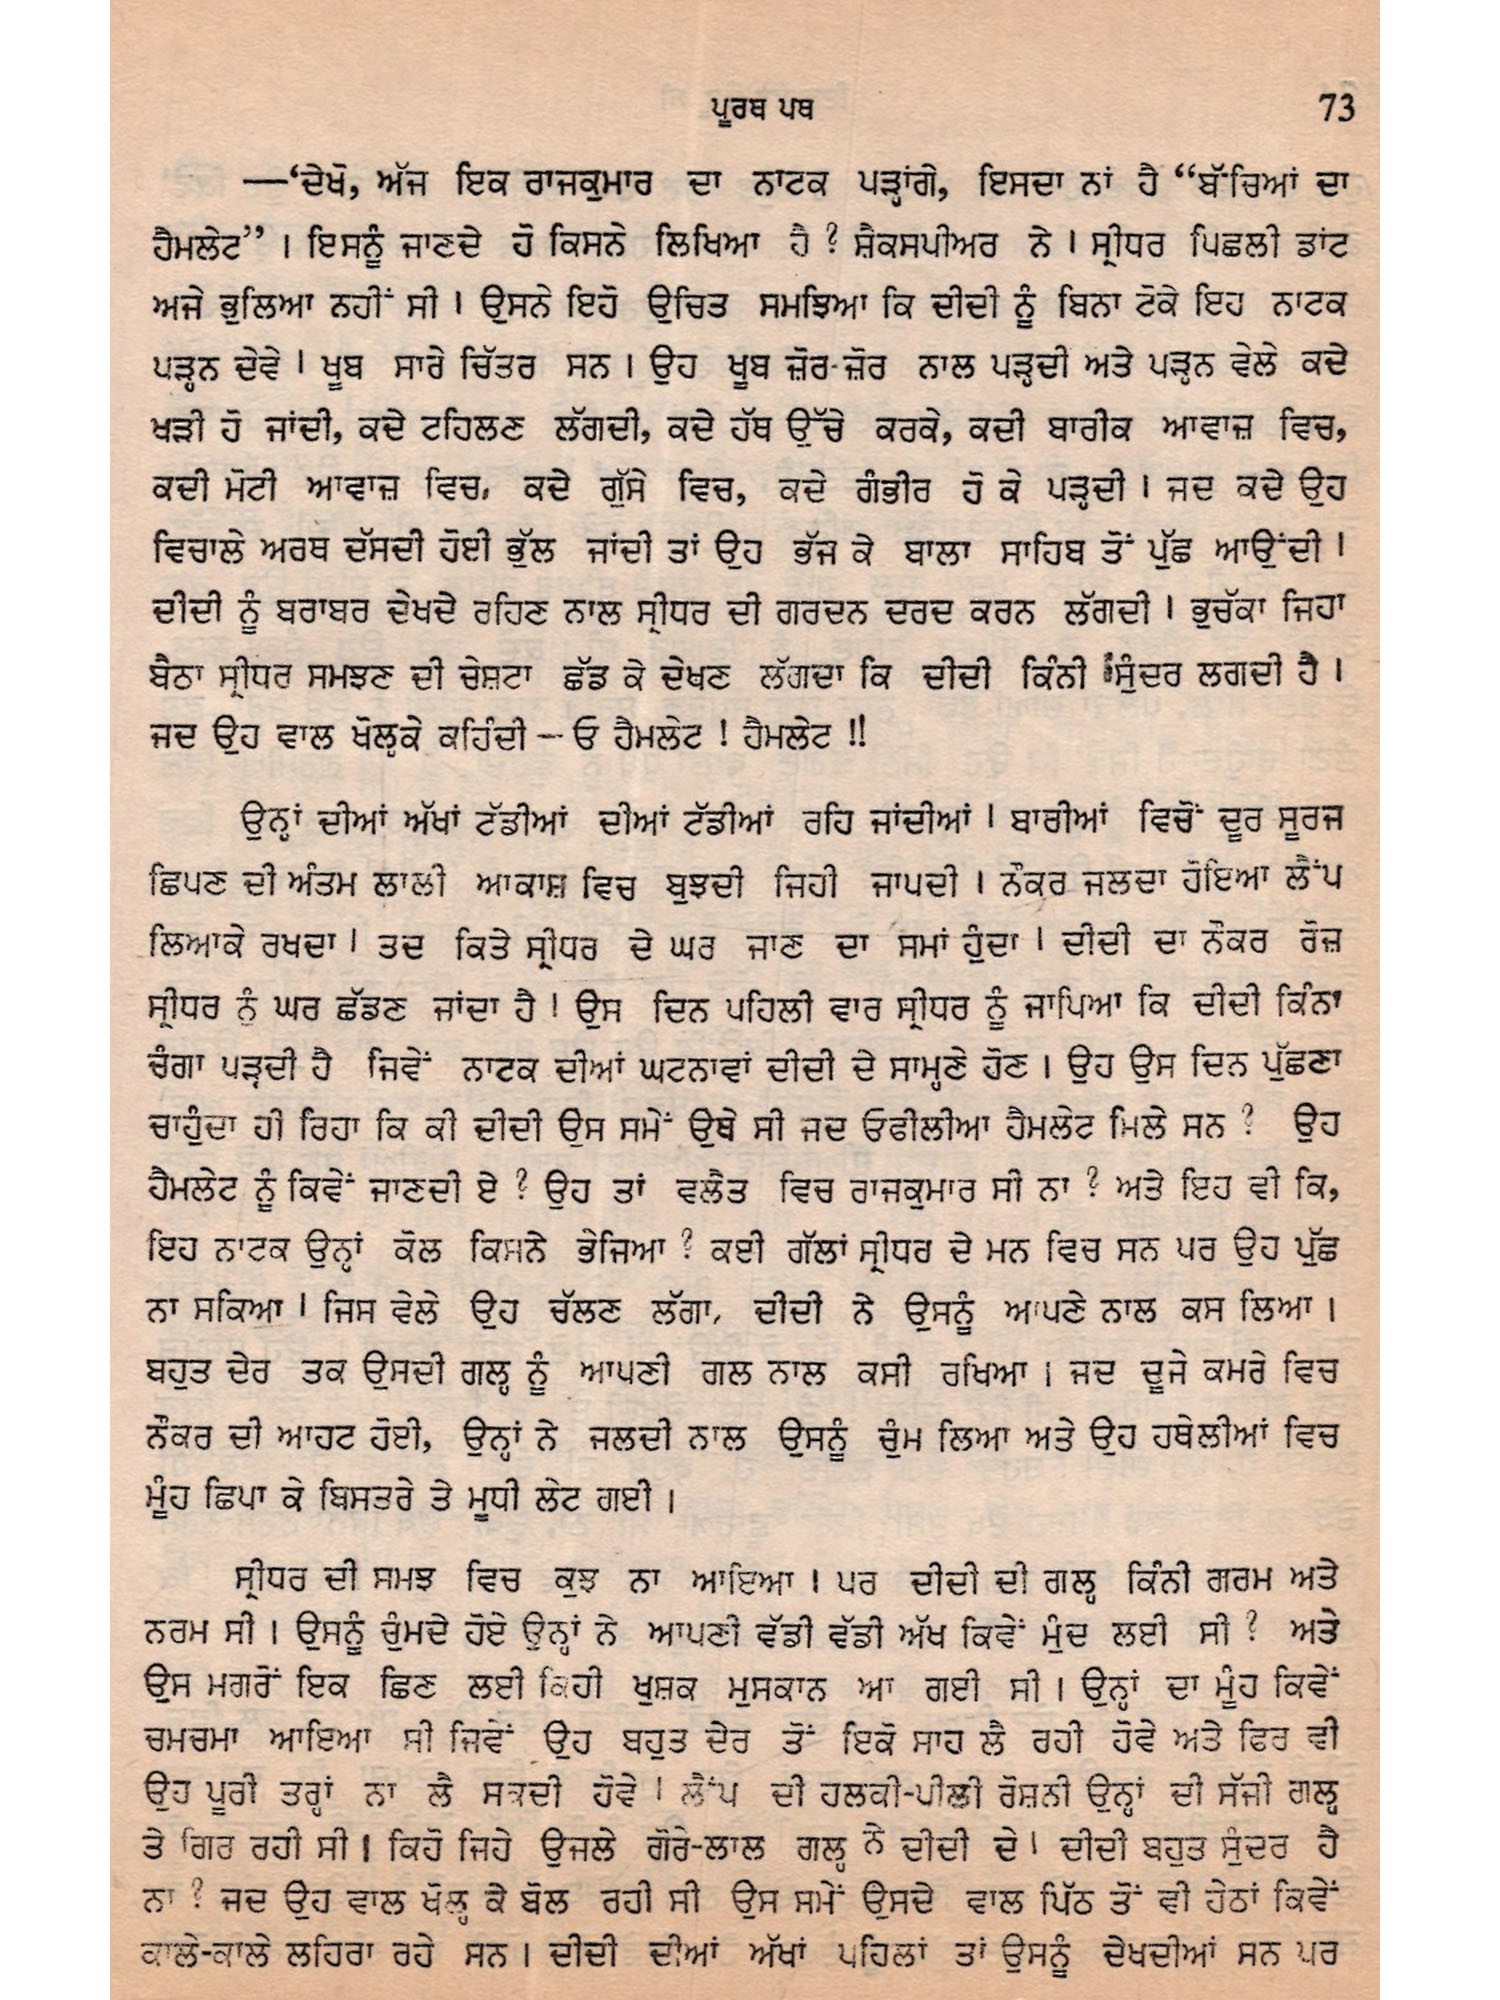 ਪੂਰਥ ਪਥ 73
—‘ਦੇਖੋ, ਅੱਜ ਇਕ ਰਾਜਕੁਮਾਰ ਦਾ ਨਾਟਕ ਪੜ੍ਹਾਂਗੇ, ਇਸਦਾ ਨਾਂ ਹੈ “ਬੱਚਿਆਂ ਦਾ
ਹੈਮਲੇਟ” । ਇਸਨੂੰ ਜਾਣਦੇ ਹੋ ਕਿਸਨੇ ਲਿਖਿਆ ਹੈ ? ਸ਼ੈਕਸਪੀਅਰ ਨੇ । ਸ੍ਰੀਧਰ ਪਿਛਲੀ ਡਾਂਟ
ਅਜੇ ਭੁਲਿਆ ਨਹੀਂ ਸੀ । ਉਸਨੇ ਇਹੋ ਉਚਿਤ ਸਮਝਿਆ ਕਿ ਦੀਦੀ ਨੂੰ ਬਿਨਾ ਟੋਕੇ ਇਹ ਨਾਟਕ
ਪੜ੍ਹਨ ਦੇਵੇ । ਖੂਬ ਸਾਰੇ ਚਿੱਤਰ ਸਨ । ਉਹ ਖੂਬ ਜ਼ੋਰ-ਜ਼ੋਰ ਨਾਲ ਪੜ੍ਹਦੀ ਅਤੇ ਪੜ੍ਹਨ ਵੇਲੇ ਕਦੇ
ਖੜੀ ਹੋ ਜਾਂਦੀ, ਕਦੇ ਟਹਿਲਣ ਲੱਗਦੀ, ਕਦੇ ਹੱਥ ਉੱਚੇ ਕਰਕੇ, ਕਦੀ ਬਾਰੀਕ ਆਵਾਜ਼ ਵਿਚ,
ਕਦੀ ਮੋਟੀ ਆਵਾਜ਼ ਵਿਚ, ਕਦੇ ਗੁੱਸੇ ਵਿਚ, ਕਦੇ ਗੰਭੀਰ ਹੋ ਕੇ ਪੜ੍ਹਦੀ । ਜਦ ਕਦੇ ਉਹ
ਵਿਚਾਲੇ ਅਰਥ ਦੱਸਦੀ ਹੋਈ ਭੁੱਲ ਜਾਂਦੀ ਤਾਂ ਉਹ ਭੱਜ ਕੇ ਬਾਲਾ ਸਾਹਿਬ ਤੋਂ ਪੁੱਛ ਆਉਂਦੀ ।
ਦੀਦੀ ਨੂੰ ਬਰਾਬਰ ਦੇਖਦੇ ਰਹਿਣ ਨਾਲ ਸ੍ਰੀਧਰ ਦੀ ਗਰਦਨ ਦਰਦ ਕਰਨ ਲੱਗਦੀ । ਭੁਚੱਕਾ ਜਿਹਾ
ਬੈਠਾ ਸ੍ਰੀਧਰ ਸਮਝਣ ਦੀ ਚੇਸ਼ਟਾ ਛੱਡ ਕੇ ਦੇਖਣ ਲੱਗਦਾ ਕਿ ਦੀਦੀ ਕਿੰਨੀ ਸੁੰਦਰ ਲਗਦੀ ਹੈ ।
ਜਦ ਉਹ ਵਾਲ ਖੋਲ੍ਹਕੇ ਕਹਿੰਦੀ – ਓ ਹੈਮਲੇਟ ! ਹੈਮਲੇਟ !!
ਉਨ੍ਹਾਂ ਦੀਆਂ ਅੱਖਾਂ ਟੱਡੀਆਂ ਦੀਆਂ ਟੱਡੀਆਂ ਰਹਿ ਜਾਂਦੀਆਂ । ਬਾਰੀਆਂ ਵਿਚੋਂ ਦੂਰ ਸੂਰਜ
ਛਿਪਣ ਦੀ ਅੰਤਮ ਲਾਲੀ ਆਕਾਸ਼ ਵਿਚ ਬੁਝਦੀ ਜਿਹੀ ਜਾਪਦੀ । ਨੌਕਰ ਜਲਦਾ ਹੋਇਆ ਲੈਂਪ
ਲਿਆਕੇ ਰਖਦਾ । ਤਦ ਕਿਤੇ ਸ੍ਰੀਧਰ ਦੇ ਘਰ ਜਾਣ ਦਾ ਸਮਾਂ ਹੁੰਦਾ । ਦੀਦੀ ਦਾ ਨੌਕਰ ਰੋਜ਼
ਸ੍ਰੀਧਰ ਨੂੰ ਘਰ ਛੱਡਣ ਜਾਂਦਾ ਹੈ । ਉਸ ਦਿਨ ਪਹਿਲੀ ਵਾਰ ਸ੍ਰੀਧਰ ਨੂੰ ਜਾਪਿਆ ਕਿ ਦੀਦੀ ਕਿੰਨਾ
ਚੰਗਾ ਪੜ੍ਹਦੀ ਹੈ ਜਿਵੇਂ ਨਾਟਕ ਦੀਆਂ ਘਟਨਾਵਾਂ ਦੀਦੀ ਦੇ ਸਾਮ੍ਹਣੇ ਹੋਣ । ਉਹ ਉਸ ਦਿਨ ਪੁੱਛਣਾ
ਚਾਹੁੰਦਾ ਹੀ ਰਿਹਾ ਕਿ ਕੀ ਦੀਦੀ ਉਸ ਸਮੇਂ ਉਥੇ ਸੀ ਜਦ ਓਫੀਲੀਆ ਹੈਮਲੇਟ ਮਿਲੇ ਸਨ ? ਉਹ
ਹੈਮਲੇਟ ਨੂੰ ਕਿਵੇਂ ਜਾਣਦੀ ਏ ? ਉਹ ਤਾਂ ਵਲੈਤ ਵਿਚ ਰਾਜਕੁਮਾਰ ਸੀ ਨਾ ? ਅਤੇ ਇਹ ਵੀ ਕਿ,
ਇਹ ਨਾਟਕ ਉਨ੍ਹਾਂ ਕੋਲ ਕਿਸਨੇ ਭੇਜਿਆ ? ਕਈ ਗੱਲਾਂ ਸ੍ਰੀਧਰ ਦੇ ਮਨ ਵਿਚ ਸਨ ਪਰ ਉਹ ਪੁੱਛ
ਨਾ ਸਕਿਆ । ਜਿਸ ਵੇਲੇ ਉਹ ਚੱਲਣ ਲੱਗਾ, ਦੀਦੀ ਨੇ ਉਸਨੂੰ ਆਪਣੇ ਨਾਲ ਕਸ ਲਿਆ ।
ਬਹੁਤ ਦੇਰ ਤਕ ਉਸਦੀ ਗਲ੍ਹ ਨੂੰ ਆਪਣੀ ਗਲ ਨਾਲ ਕਸੀ ਰਖਿਆ । ਜਦ ਦੂਜੇ ਕਮਰੇ ਵਿਚ
ਨੌਕਰ ਦੀ ਆਹਟ ਹੋਈ, ਉਨ੍ਹਾਂ ਨੇ ਜਲਦੀ ਨਾਲ ਉਸਨੂੰ ਚੁੰਮ ਲਿਆ ਅਤੇ ਉਹ ਹਥੇਲੀਆਂ ਵਿਚ
ਮੂੰਹ ਛਿਪਾ ਕੇ ਬਿਸਤਰੇ ਤੇ ਮੂਧੀ ਲੇਟ ਗਈ ।
ਸ੍ਰੀਧਰ ਦੀ ਸਮਝ ਵਿਚ ਕੁਝ ਨਾ ਆਇਆ । ਪਰ ਦੀਦੀ ਦੀ ਗਲ੍ਹ ਕਿੰਨੀ ਗਰਮ ਅਤੇ
ਨਰਮ ਸੀ । ਉਸਨੂੰ ਚੁੰਮਦੇ ਹੋਏ ਉਨ੍ਹਾਂ ਨੇ ਆਪਣੀ ਵੱਡੀ ਵੱਡੀ ਅੱਖ ਕਿਵੇਂ ਮੁੰਦ ਲਈ ਸੀ ? ਅਤੇ
ਉਸ ਮਗਰੋਂ ਇਕ ਛਿਣ ਲਈ ਕਿਹੀ ਖੁਸ਼ਕ ਮੁਸਕਾਨ ਆ ਗਈ ਸੀ । ਉਨ੍ਹਾਂ ਦਾ ਮੂੰਹ ਕਿਵੇਂ
ਚਮਚਮਾ ਆਇਆ ਸੀ ਜਿਵੇਂ ਉਹ ਬਹੁਤ ਦੇਰ ਤੋਂ ਇਕੋ ਸਾਹ ਲੈ ਰਹੀ ਹੋਵੇ ਅਤੇ ਫਿਰ ਵੀ
ਉਹ ਪੂਰੀ ਤਰ੍ਹਾਂ ਨਾ ਲੈ ਸਕਦੀ ਹੋਵੇ । ਲੈਂਪ ਦੀ ਹਲਕੀ-ਪੀਲੀ ਰੋਸ਼ਨੀ ਉਨ੍ਹਾਂ ਦੀ ਸੱਜੀ ਗਲ੍ਹ
ਤੇ ਗਿਰ ਰਹੀ ਸੀ । ਕਿਹੋ ਜਿਹੇ ਉਜਲੇ ਗੋਰੇ-ਲਾਲ ਗਲ੍ਹ ਨੇ ਦੀਦੀ ਦੇ । ਦੀਦੀ ਬਹੁਤ ਸੁੰਦਰ ਹੈ
ਨਾ ? ਜਦ ਉਹ ਵਾਲ ਖੋਲ੍ਹ ਕੇ ਬੋਲ ਰਹੀ ਸੀ ਉਸ ਸਮੇਂ ਉਸਦੇ ਵਾਲ ਪਿੱਠ ਤੋਂ ਵੀ ਹੇਠਾਂ ਕਿਵੇਂ
ਕਾਲੇ-ਕਾਲੇ ਲਹਿਰਾ ਰਹੇ ਸਨ । ਦੀਦੀ ਦੀਆਂ ਅੱਖਾਂ ਪਹਿਲਾਂ ਤਾਂ ਉਸਨੂੰ ਦੇਖਦੀਆਂ ਸਨ ਪਰ